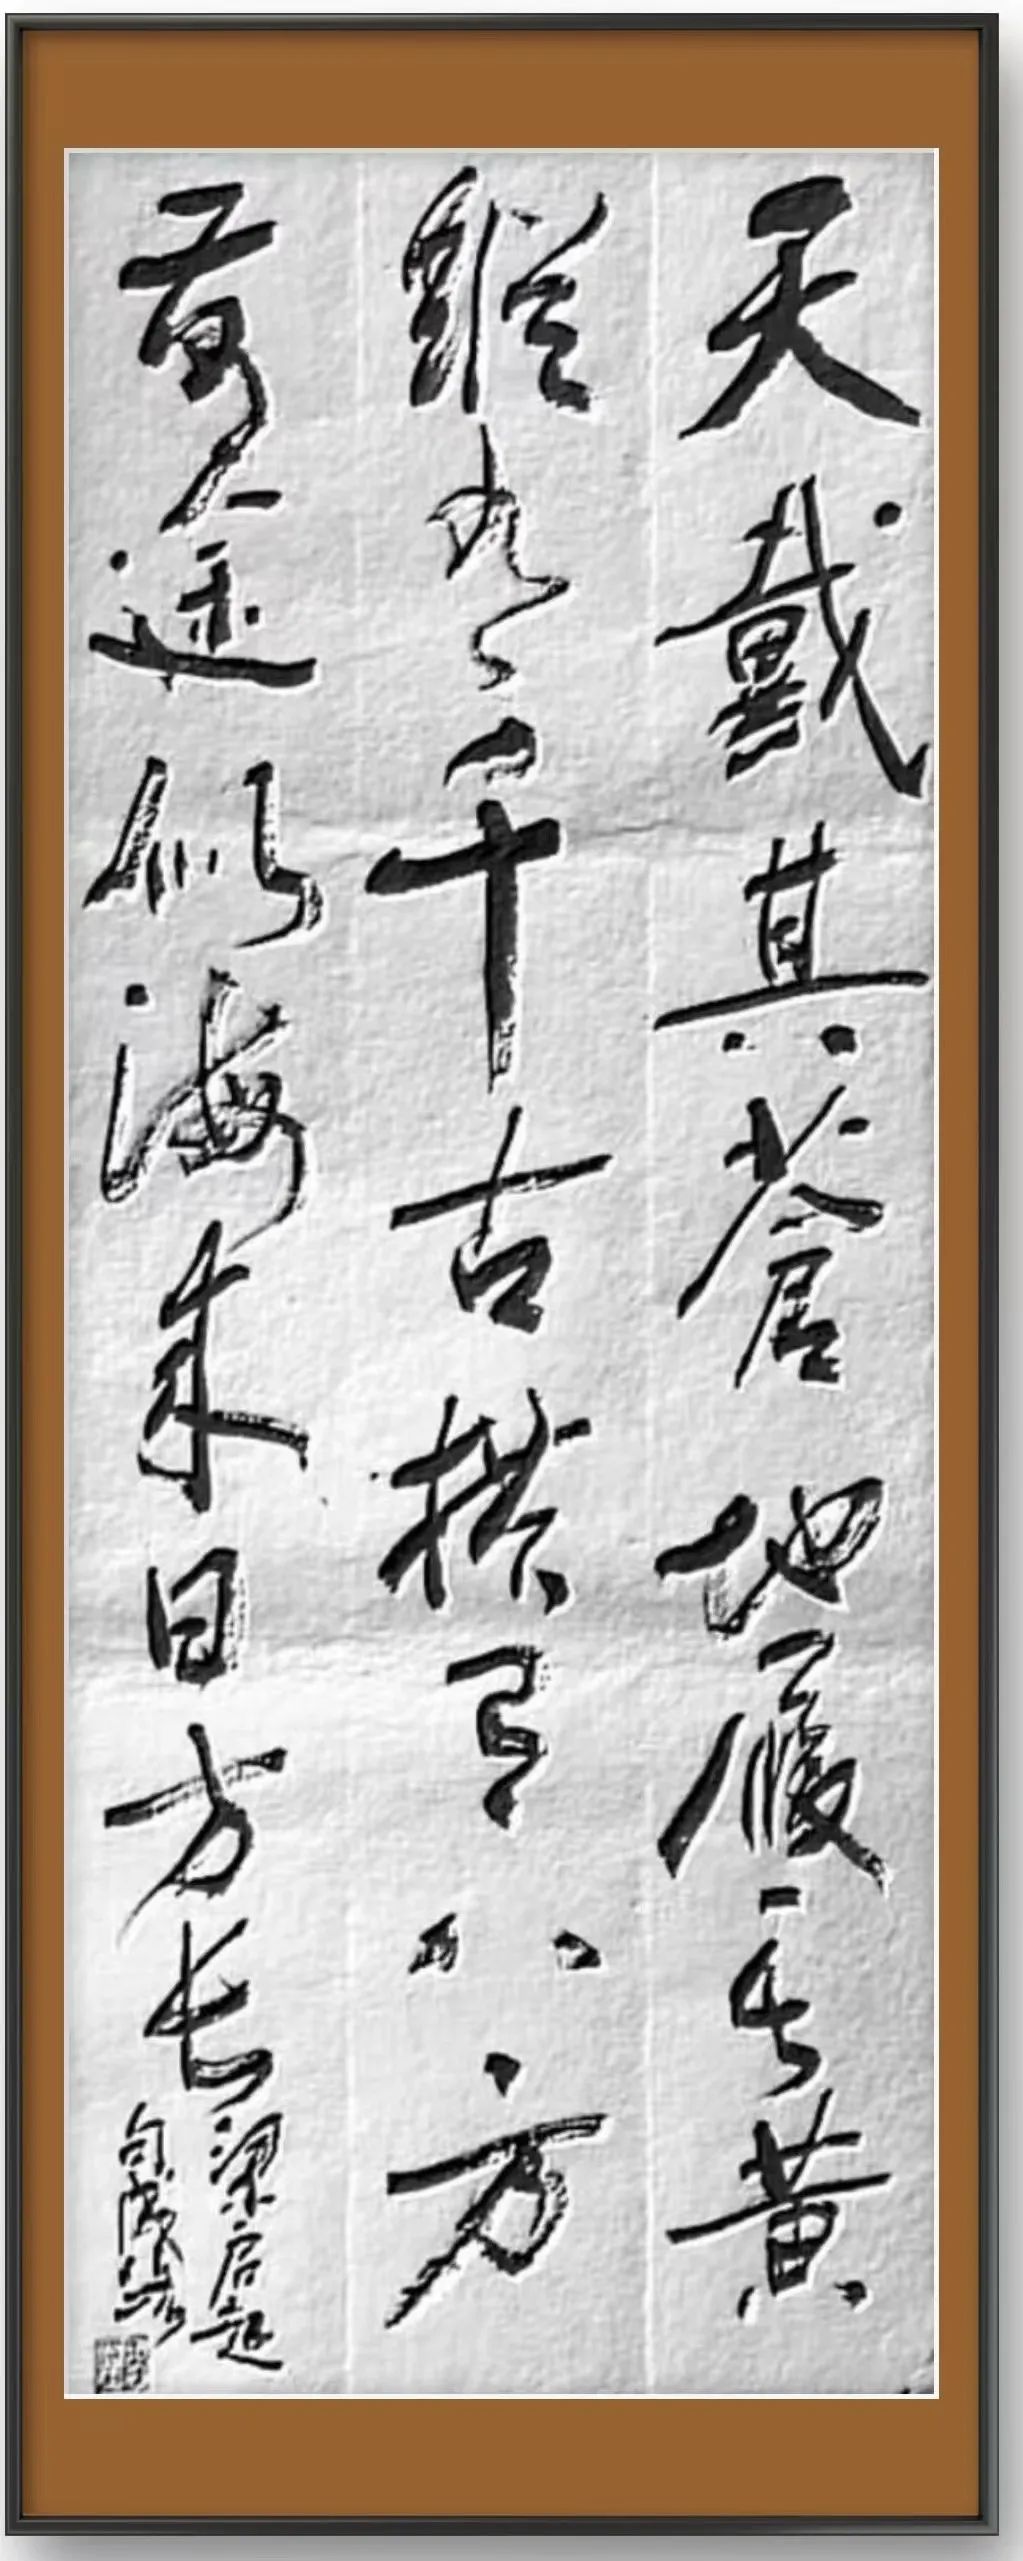 天戴其苍地履其黄
縱有千古横有八方
前途似海来日方长
梁启超
句